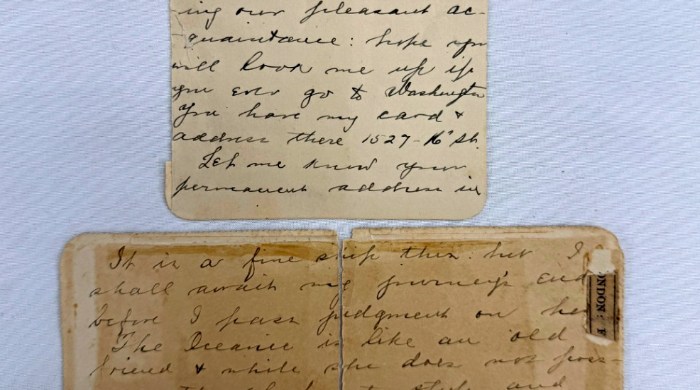 ing our pleasant ac-
quaintance: hope you
will look me up if
you ever go to Washington
You have my card &
address there 1527-16" St.
Let me know your
permanent address in
It is a fine ship this. but I
shall await my journey's end
before I pass judgment on her
The Oceanic is like an old
friend & while she does not poss-
ONDON: F